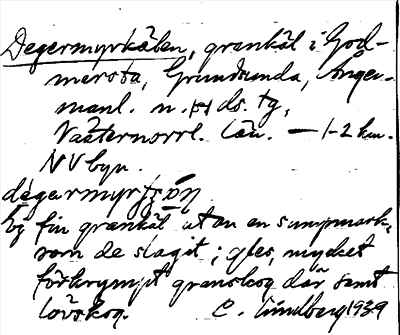 Degermyrkälen, grankäl i God-
mersta, Grundsunda, Ånger-
manl. n. ds. tg,
Västernorrl. län. — 1-2 km.
NV byn.
degarmyrt
fin grankäl utan en sumpmark,
som de slagit; gles, mycket
förkrympt granskog där samt
lövskog. C. Lindberg 1939